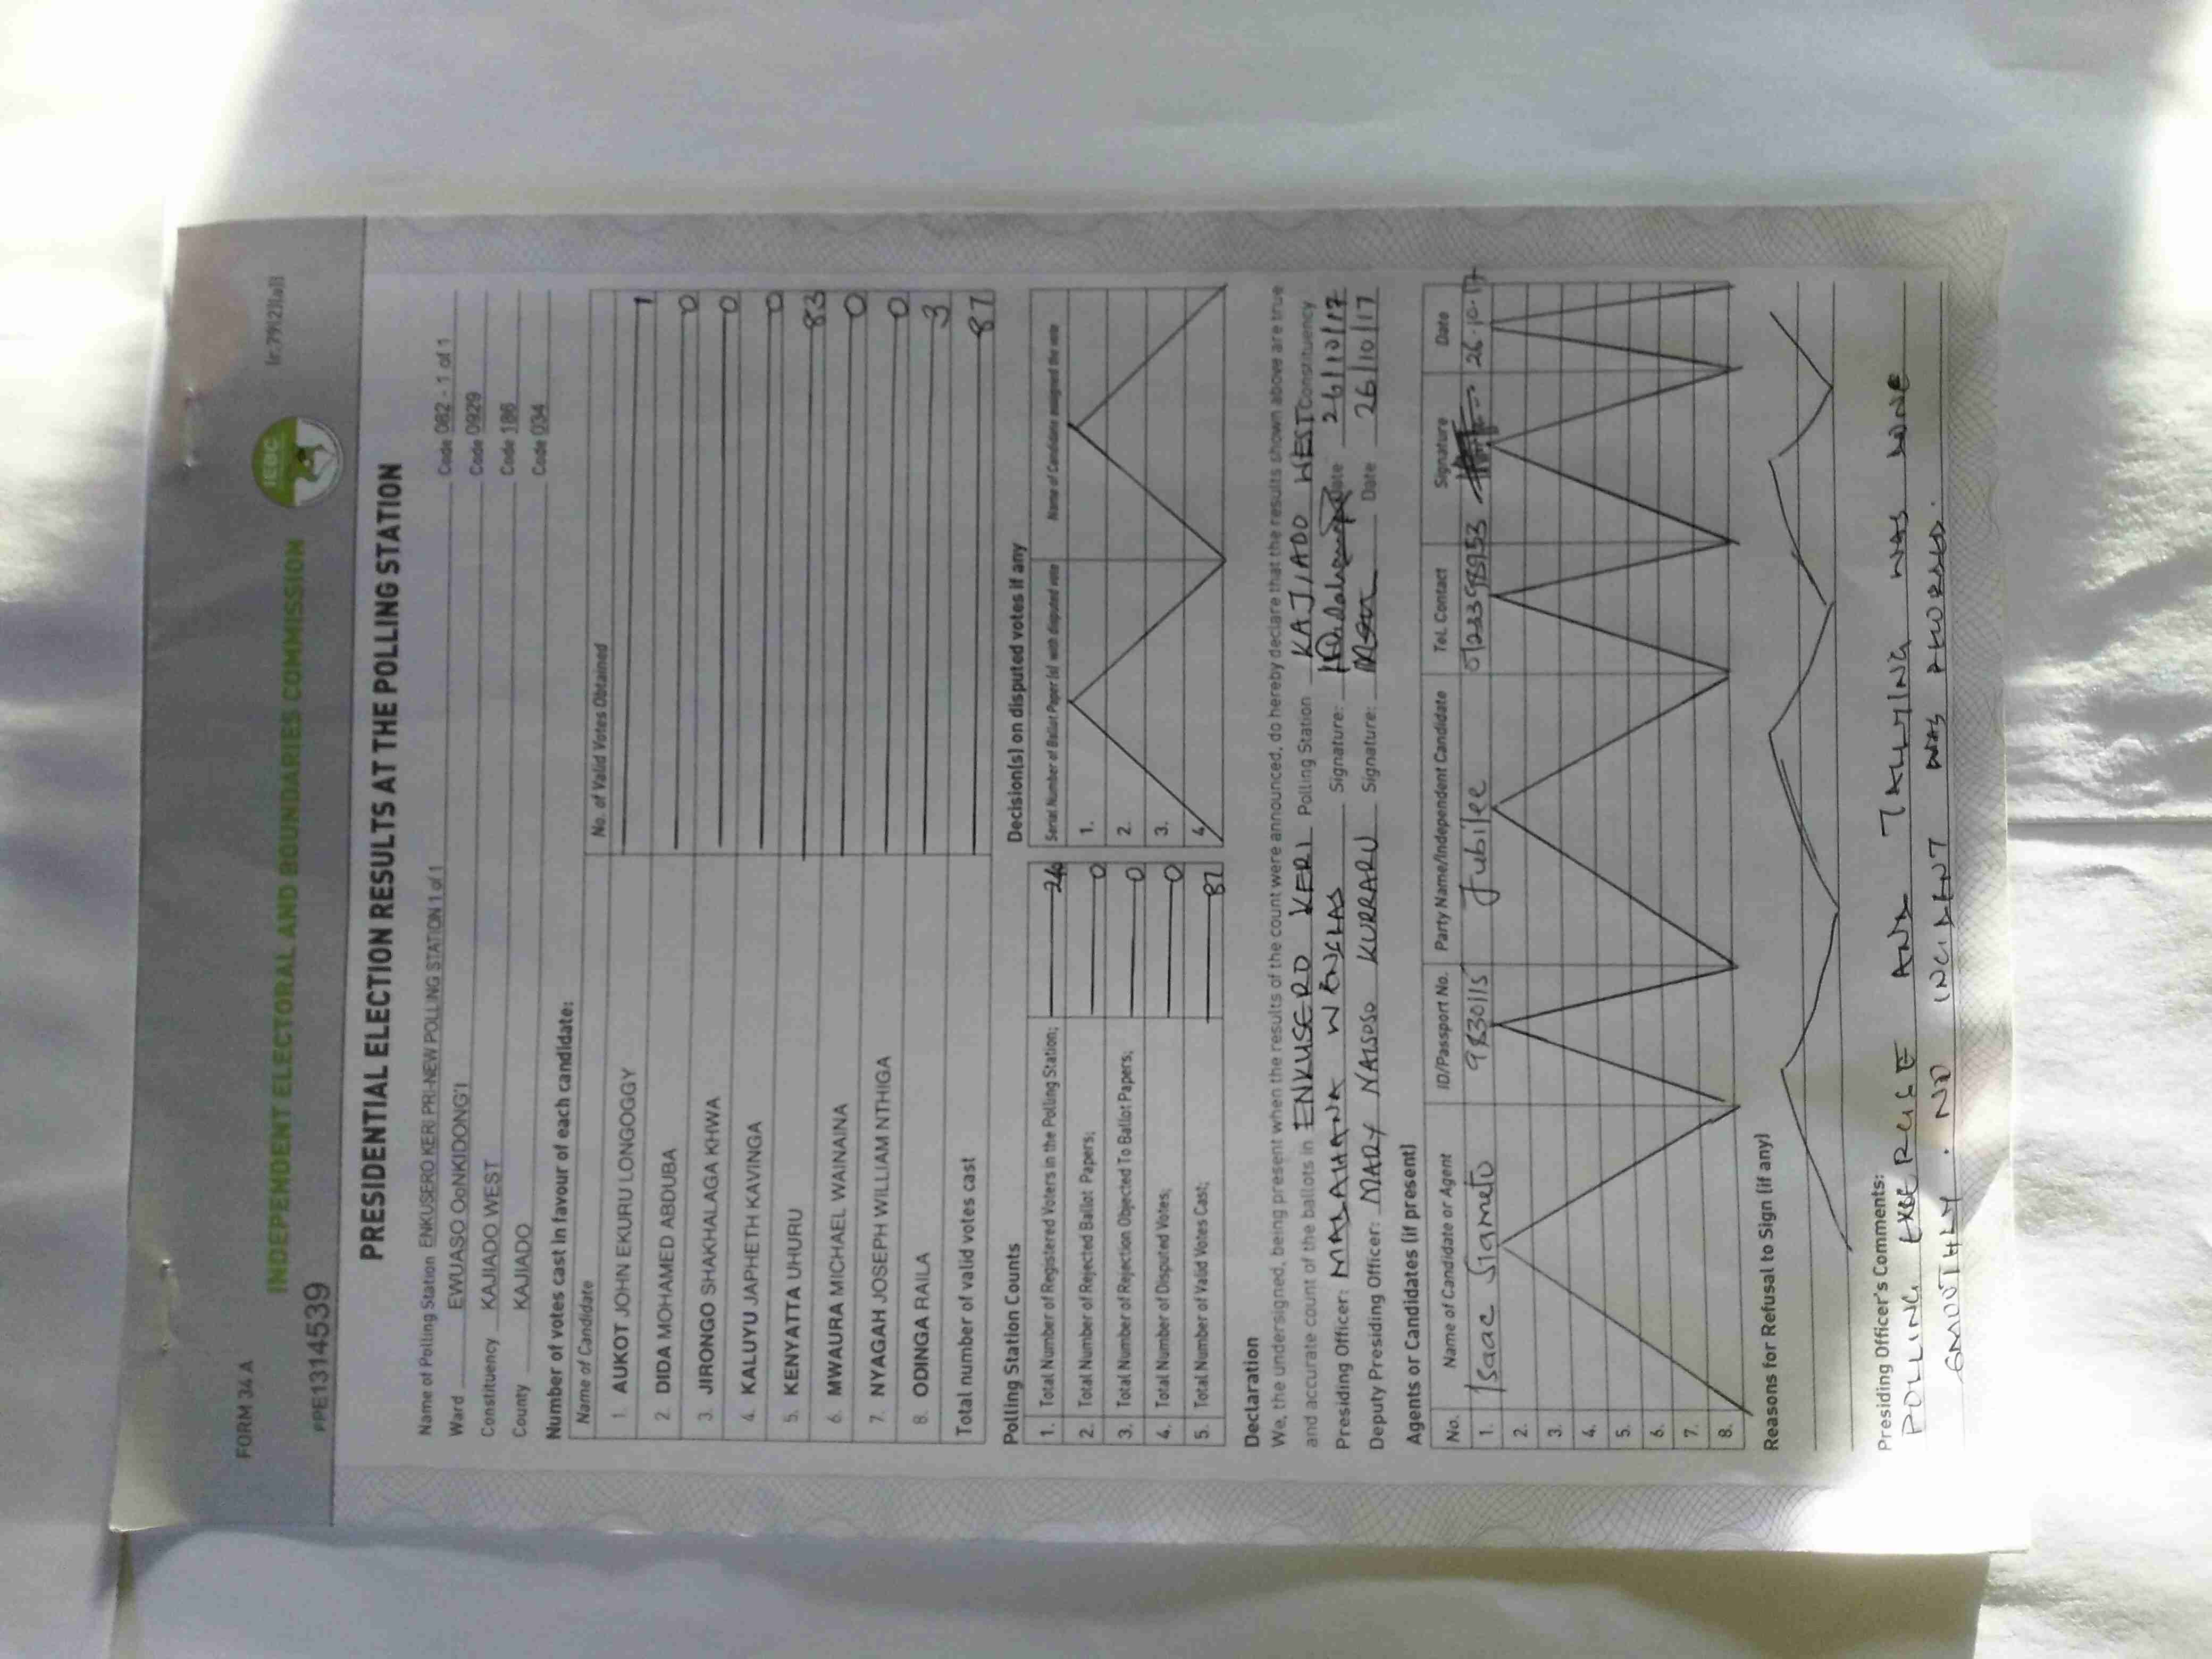 FORM 34 A
INDEPENDENT ELECTORAL AND BOUNDARIES COMMISSION
IEBC
PPE1314539
PRESIDENTIAL ELECTION RESULTS AT THE POLLING STATION
Name of Polling Station ENKUSERO KERI PRI-NEW POLLING STATION 1 of 1 Code 082 - 1 of 1
Ward EWUASO OoNKIDONG'I Code 0929
Constituency KAJIADO WEST Code 186
County KAJIADO Code 034
Number of votes cast in favour of each candidate:
Name of Candidate No. of Valid Votes Obtained
1. AUKOT JOHN EKURU LONGOGGY 1
2. DIDA MOHAMED ABDUBA 0
3. JIRONGO SHAKHALAGA KHWA 0
4. KALUYU JAPHETH KAVINGA 0
5. KENYATTA UHURU 83
6. MWAURA MICHAEL WAINAINA 0
7. NYAGAH JOSEPH WILLIAM NTHIGA 0
8. ODINGA RAILA 3
Total number of valid votes cast 87
Polling Station Counts
1. Total Number of Registered Voters in the Polling Station;
2. Total Number of Rejected Ballot Papers; 0
3. Total Number of Rejection Objected To Ballot Papers; 0
4. Total Number of Disputed Votes; 0
5. Total Number of Valid Votes Cast; 87
Decision(s) on disputed votes if any
Serial Number of Ballot Paper (s) with disputed vote Name of Candidate assigned the vote
1.
2.
3.
4.
Declaration
We, the undersigned, being present when the results of the count were announced, do hereby declare that the results shown above are true
and accurate count of the ballots in ENKUSERO KERI Polling Station KAJIADO WEST Constituency
Presiding Officer: Signature: Date 26/10/17
Deputy Presiding Officer: MARY NAISOSO KURRARU Signature: Date 26/10/17
Agents or Candidates (if present)
No. Name of Candidate or Agent ID/Passport No. Party Name/Independent Candidate Tel. Contact Signature Date
1. Isaac Siameto 9830115 Jubilee 26.10.17
2.
3.
4.
5.
6.
7.
8.
Reasons for Refusal to Sign (if any)
Presiding Officer's Comments:
POLLING EXERCISE AND TALLYING WAS DONE
SMOOTHLY. NO INCIDENT WAS